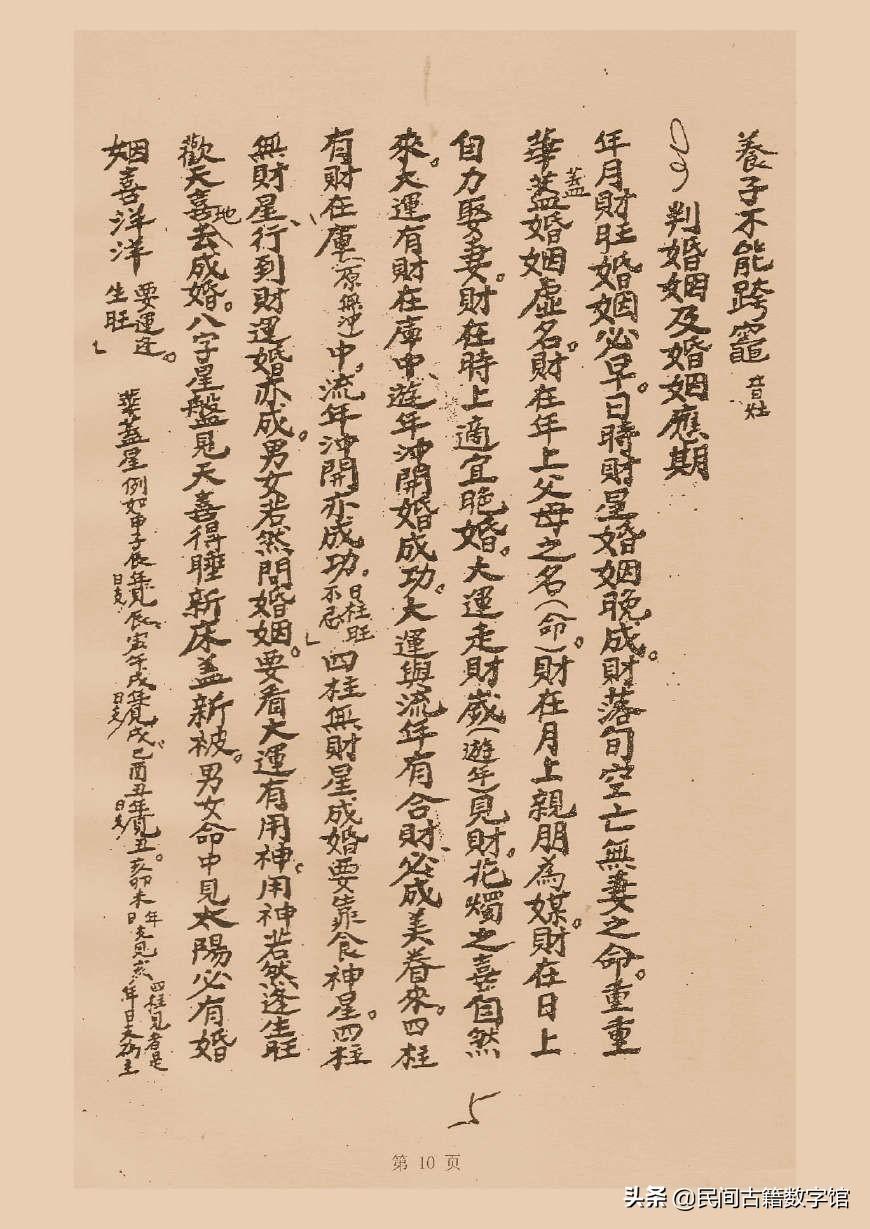 養子不能跨竈 音灶
判婚姻及婚姻應期
年月財旺婚姻必早。日時財星婚姻晚成。財落旬空亡無妻之命。重重
華蓋婚姻虛名。財在年上父母之名(命)。財在月上親朋為媒。財在日上
蓋
自力娶妻。財在時上適宜晚婚。大運走財嵗(遊年)見財。花燭之喜自然
來。大運有財在庫中、遊年沖開婚成功。大運與流年有合財、必成美眷來。四柱
有財在庫(原無沖)中,流年沖開亦成功。日柱旺不忌」四柱無財星成婚要靠食神星。四柱
無財星、行到財運婚亦成。男女若然問婚姻。要看大運有用神。用神若然逢生旺
歡天喜地去成婚。八字星盤見天喜得睡新床盖新被。男女命中見太陽必有婚
姻喜洋洋 要運逢生旺。」
華蓋星 例如申子辰年見辰。寅午戌年見戌巳酉丑年見丑。亥卯未年
日支
日支
日支
四柱見者是
5
第 10 页
头条 @民间古籍数字馆